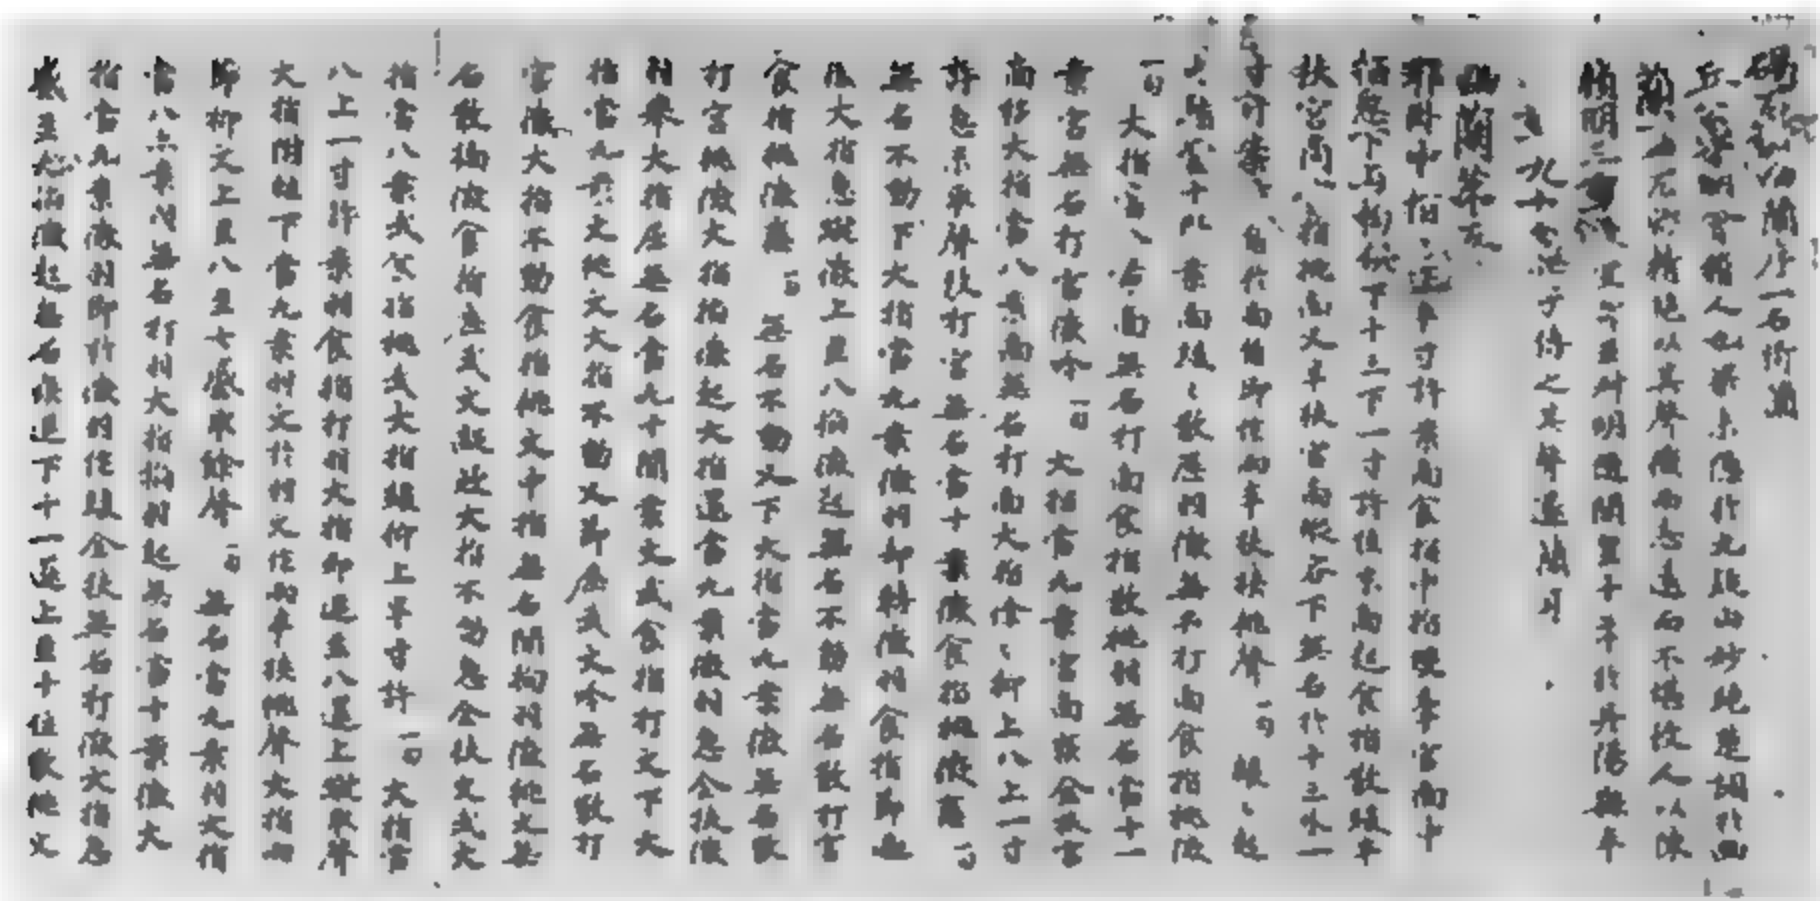 碣石調幽蘭序一名倚蘭
丘公字明會稽人也梁末隱於九疑山妙絶楚調於幽
蘭一曲尤特精絶以其聲微而志遠而不堪授人以陳
禎明三年授宜都王叔明隨開皇十年於丹陽縣卒
年九十七無子傳之其聲遂簡耳
幽蘭第五
耶臥中指十上半寸許案商食指中指雙牽宮商中
指急下与抅俱下十三下一寸許住末商起食指散緩半
扶宮商食指挑商又半扶宮商縱容下無名於十三外一
寸許案商角於商角即作兩半扶挾挑聲一句緩〻起
蹴蓋十八案商緩〻散歷羽徴無名打商食指挑徴
一句大指當八案商無名打商食指散挑羽無名當十一
案宮無名打宮徴一句大指當九案宮商疾全扶宮
商移大指當八案商無名打商大指徐〻抑上八上一寸
許急末取聲散打宮無名當十案徴食指挑徴應一句
無名不動下大指當九案徴羽即轉徴羽食指節過
徴大指急蹴徴上至八抅徴起無名不動無名散打宮
食指挑徴應一句無名不動又下大指當九案徴無名散
打宮挑徴大指抅徴起大指還當九案徴羽急全扶徴
羽舉大指歷無名當九十間案文武食指打文下大
指當九案文挑文大指不動又節歷武文吟無名散打
宮徴大指不動食指挑文中指無名間抅羽徴挑文無
名散摘徴食指歷武文應此大指不動急全扶文武大
指當八案武食指挑武大指緩仰上半寸許一句大指當
八上一寸許案羽食指打羽大指即退至八還上蹴取聲
大指附絃下當九案羽文於羽文作兩半扶挾挑聲大指兩
節抑文上至八至七慼取餘聲一句無名當九案羽大指
當八亦案羽無名打羽大指抅羽起無名當十案徴大
指當九案徴羽即於徴羽作緩全扶無名打徴大指急
慼至九抅徴起無名疾退下十一還上至十位散挑文